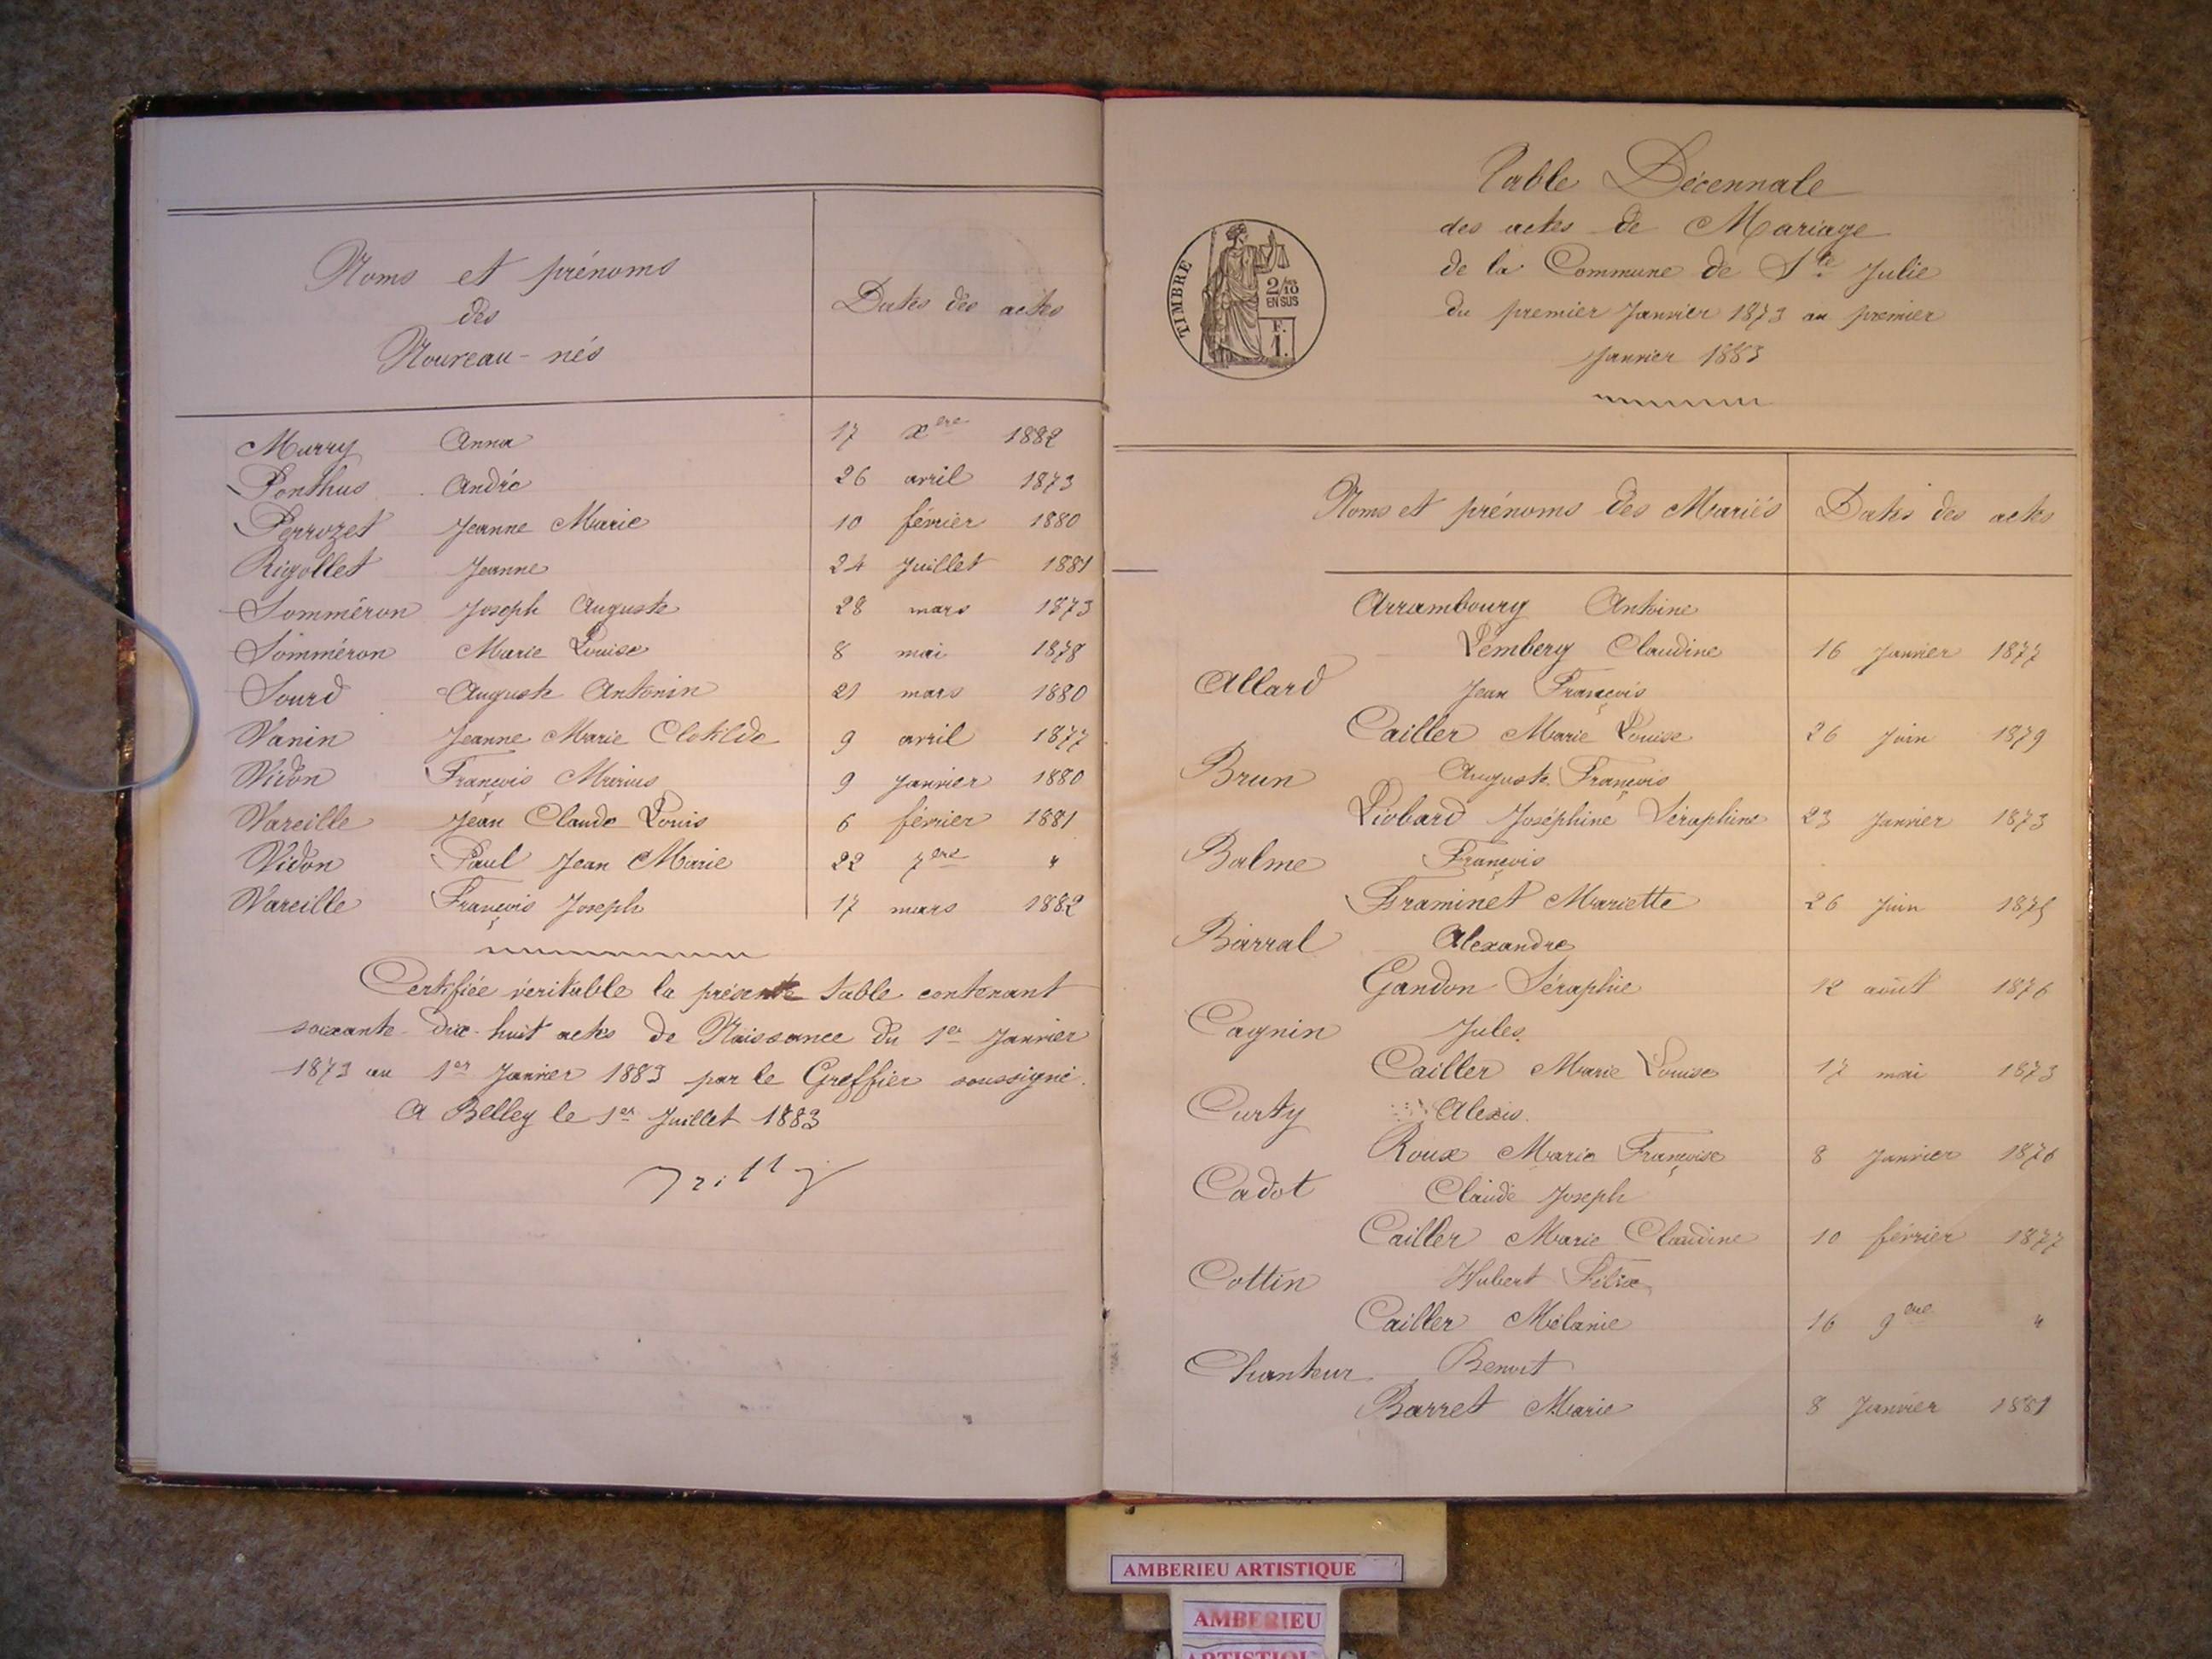 Noms et prénoms
des
Nouveau-nés
Dates des actes
Murry Anna 17 Xbre 1882
Ponthus André 26 avril 1873
Perrozet Jeanne Marie 10 février 1880
Rigollet Jeanne 24 Juillet 1881
Somméron Joseph Auguste 28 mars 1873
Somméron Marie Louise 8 mai 1878
Sourd Auguste Antonin 21 mars 1880
Vanin Jeanne Marie Clotilde 9 avril 1877
Vidon François Marius 9 Janvier 1880
Vareille Jean Claude Louis 6 février 1881
Vidon Paul Jean Marie 22 7bre "
Vareille François Joseph 17 mars 1882
Certifiée véritable la présente table contenant
soixante-dix-huit actes de Naissance du 1er Janvier
1873 au 1er Janvier 1883 par le Greffier soussigné.
A Belley le 1er Juillet 1883
Table Décennale
des actes de Mariage
de la Commune de Ste Julie
du premier Janvier 1873 au premier
Janvier 1883
TIMBRE
2/10
EN SUS
F.
1.
Noms et prénoms des Mariés Dates des actes
Arrambourg Antoine
Lembery Claudine 16 Janvier 1877
Allard Jean François
Cailler Marie Louise 26 Juin 1879
Brun Auguste François
Liobard Joséphine Séraphine 23 Janvier 1873
Balme François
Framinet Mariette 26 Juin 1875
Barral Alexandre
Gandon Séraphie 12 août 1876
Cagnin Jules
Cailler Marie Louise 17 mai 1873
Curty Alexis
Roux Marie Françoise 8 Janvier 1876
Cadot Claude Joseph
Cailler Marie Claudine 10 février 1877
Cottin Hubert Félix
Cailler Mélanie 16 9bre "
Chanteur Benoit
Barret Marie 8 Janvier 1881
AMBERIEU ARTISTIQUE
AMBERIEU
ARTISTIQUE